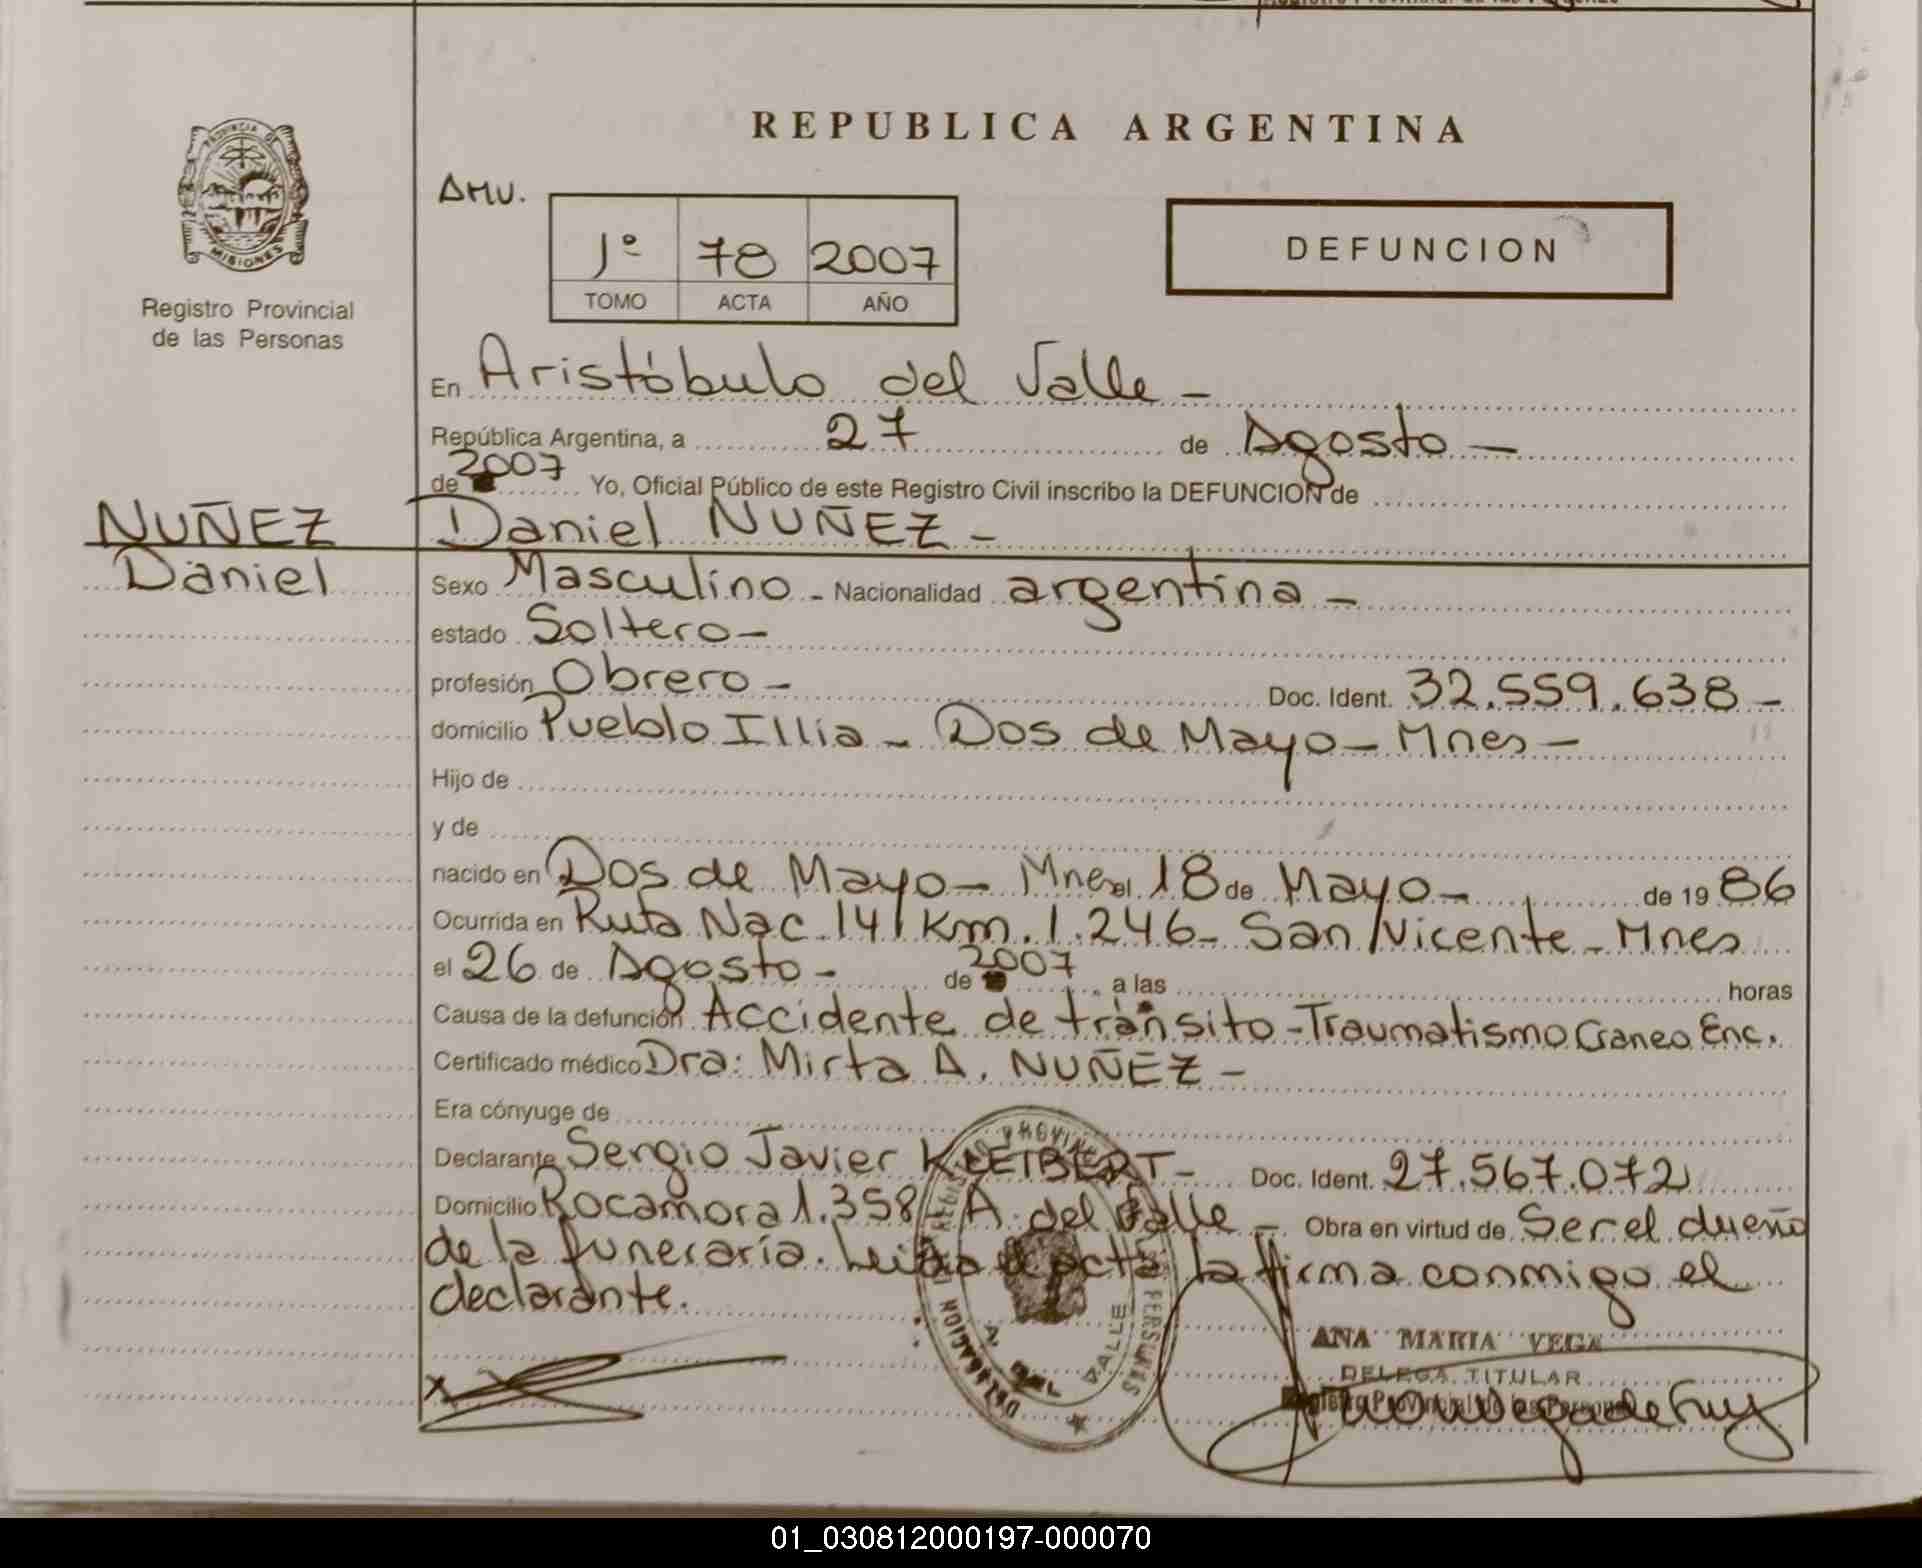 REPUBLICA ARGENTINA
PROVINCIA DE
MISIONES
Registro Provincial
de las Personas
AMU.
1º 78 2007
TOMO ACTA AÑO
DEFUNCION
En Aristóbulo del Valle -
República Argentina, a 27 de Agosto -
de 2007 Yo, Oficial Público de este Registro Civil inscribo la DEFUNCION de
NUÑEZ Daniel NUÑEZ -
Daniel
Sexo Masculino - Nacionalidad argentina -
estado Soltero -
profesión Obrero - Doc. Ident. 32.559.638 -
domicilio Pueblo Illia - Dos de Mayo - Mnes -
Hijo de
y de
nacido en Dos de Mayo - Mnes el 18 de Mayo - de 19 86
Ocurrida en Ruta Nac 14 Km. 1.246 - San Vicente - Mnes
el 26 de Agosto - de 2007 a las horas
Causa de la defunción Accidente de tránsito - Traumatismo Craneo Enc.
Certificado médico Dra: Mirta A. NUÑEZ -
Era cónyuge de
Declarante Sergio Javier KLEIBERT - Doc. Ident. 27.567.072
Domicilio Rocamora 1.358 A. del Valle - Obra en virtud de Ser el dueño
de la funeraria. Leida el acta la firma conmigo el
declarante.
ANA MARIA VEGA
DELEGA. TITULAR
Registro Provincial de las Personas
01_030812000197-000070